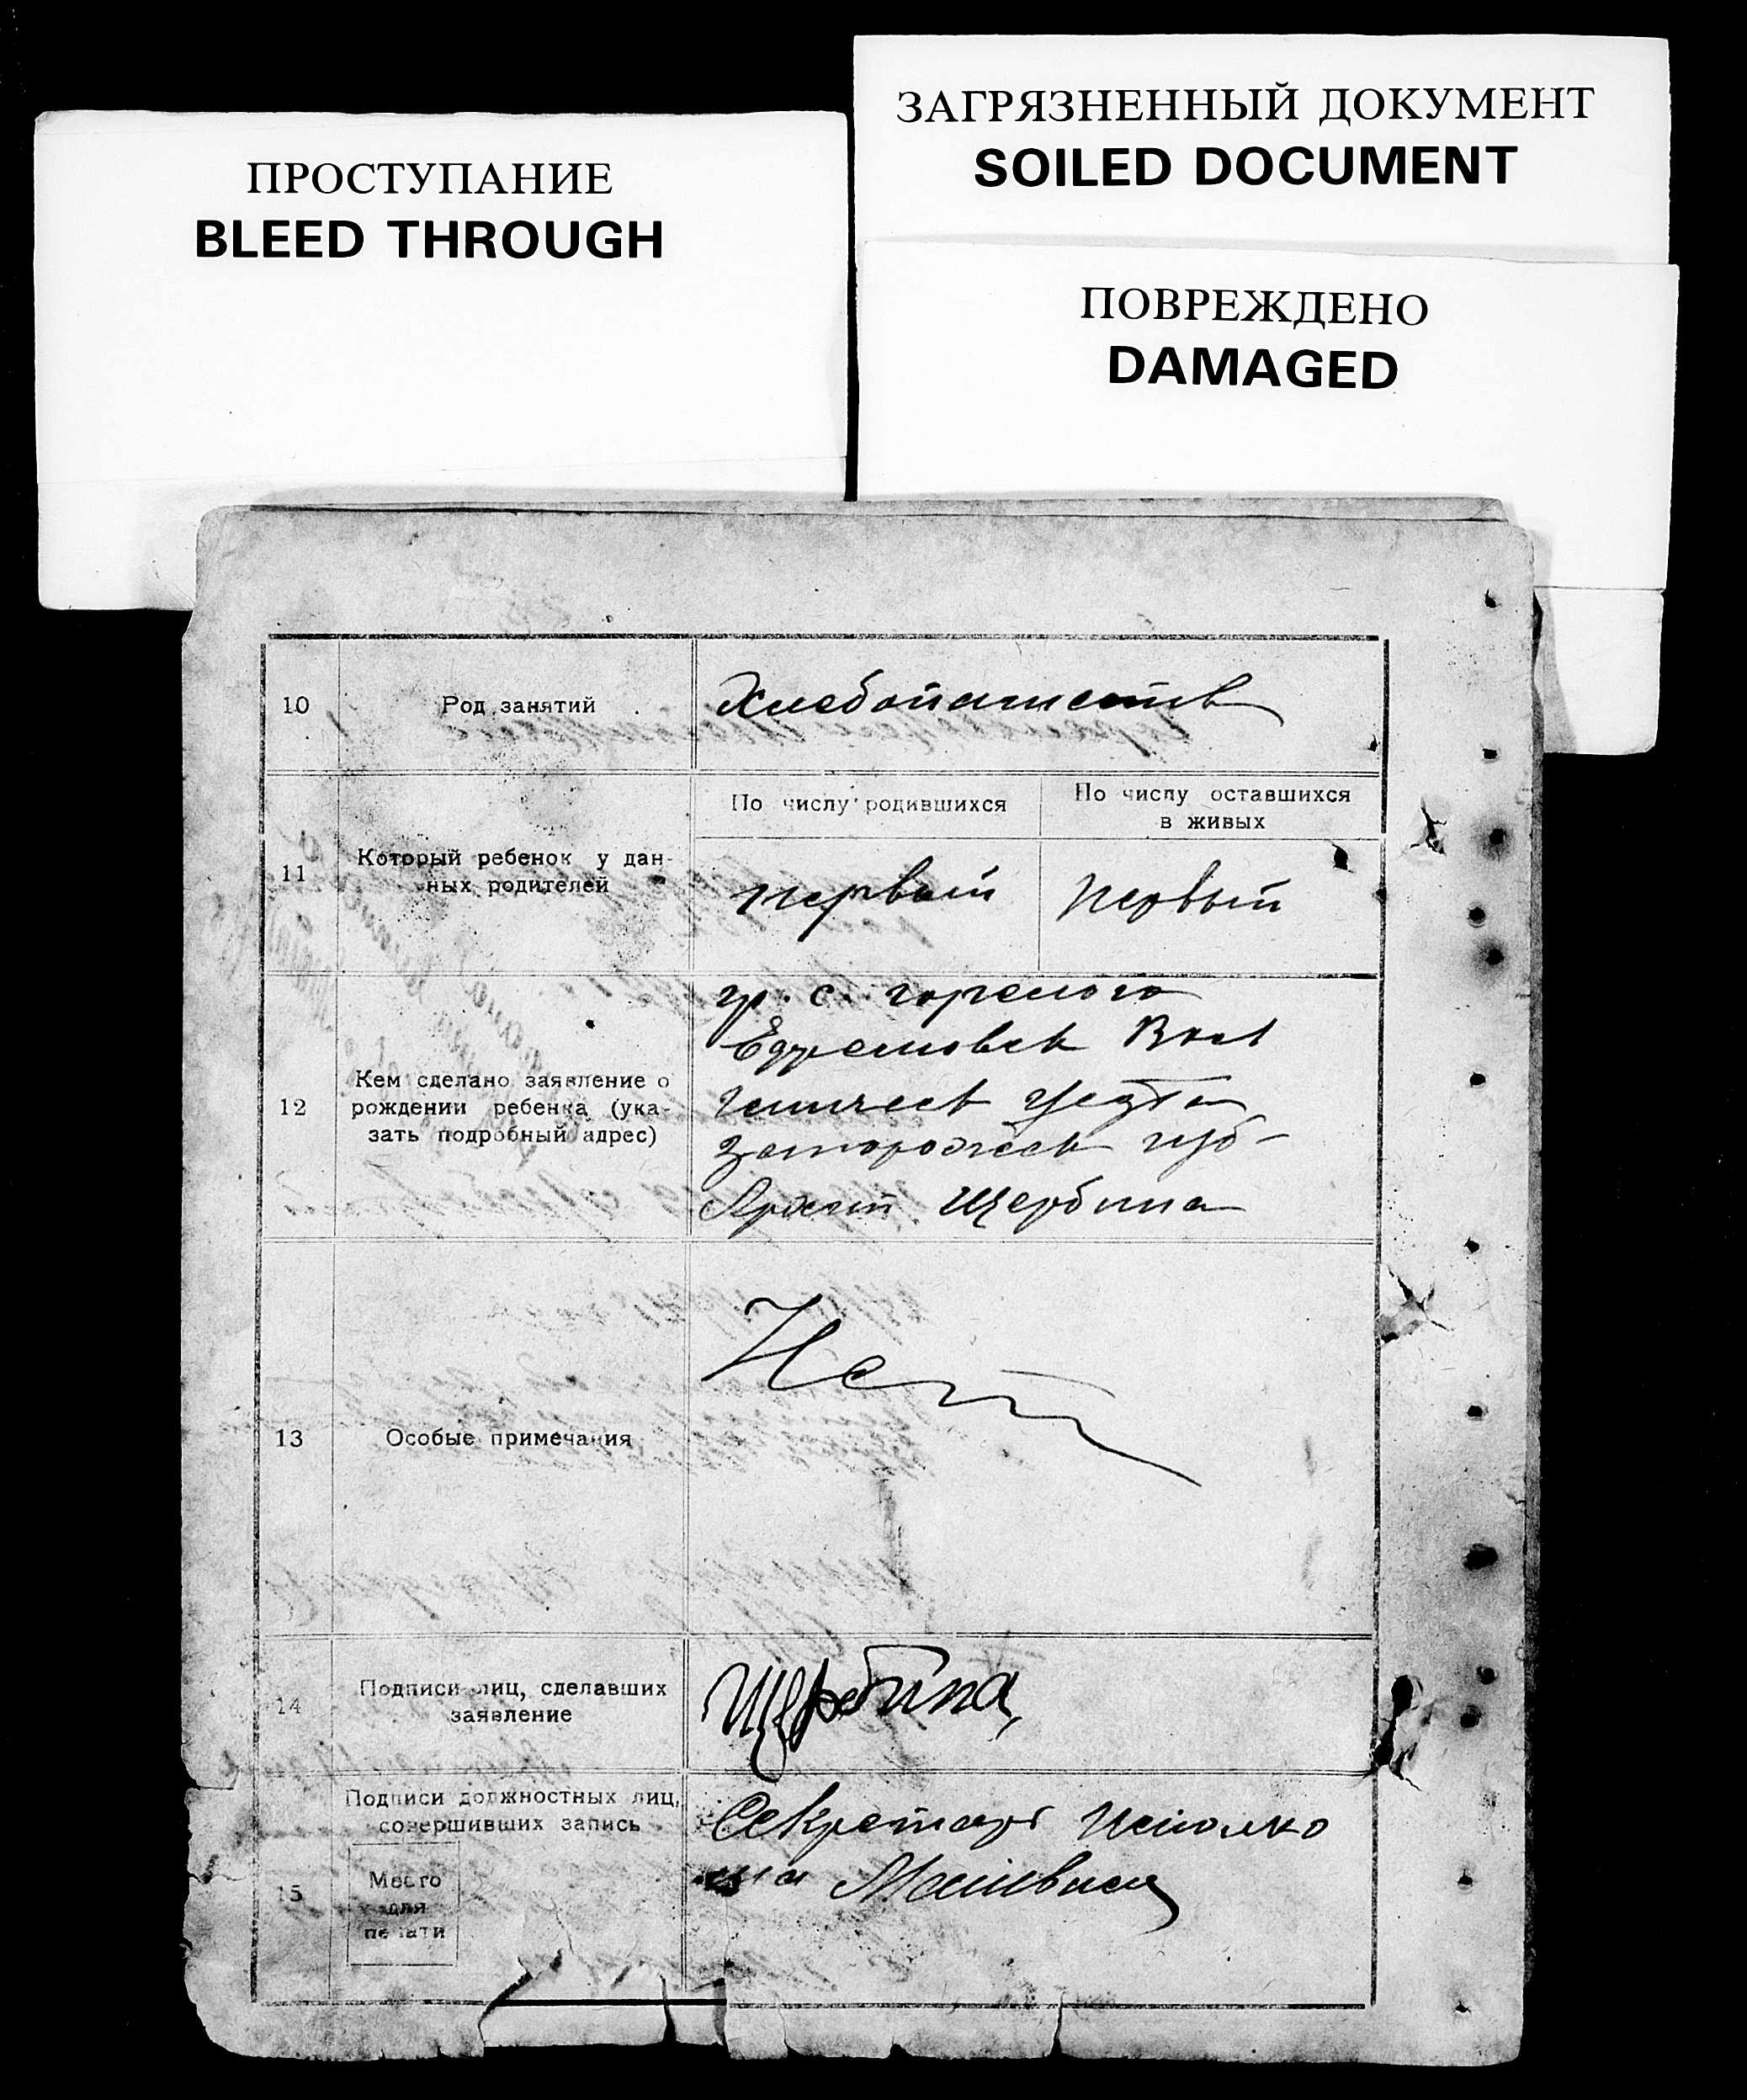 ЗАГРЯЗНЕННЫЙ ДОКУМЕНТ
SOILED DOCUMENT
ПРОСТУПАНИЕ
BLEED THROUGH
ПОВРЕЖДЕНО
DAMAGED
10 Род занятий Хлебопашеств
По числу родившихся По числу оставшихся
в живых
11 Который ребенок у дан-
ных родителей
первый первый
гр. с. горелого
Ефремовск Вол
Геническ уезда
12 Кем сделано заявление о
рождении ребенка (ука-
зать подробный адрес)
запорожск губ-
Щербина
Нет
13 Особые примечания
14 Подписи лиц, сделавших
заявление
Щербина
Подписи должностных лиц,
совершивших запись
Секретарь исполко
ма
15 Место
для
печати